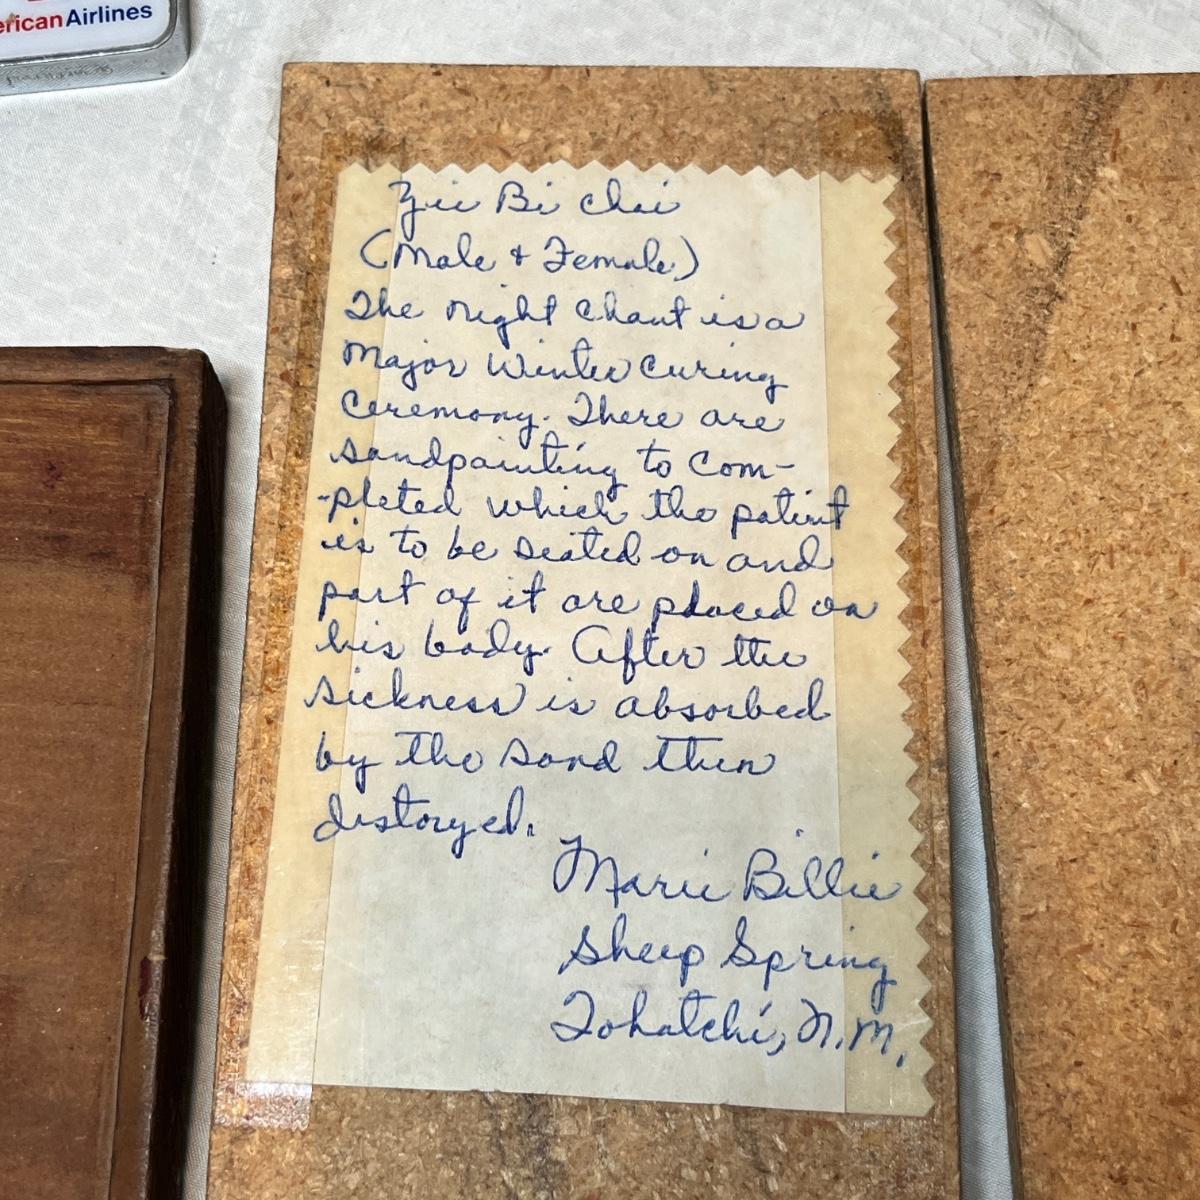 American Airlines
Yii Bi chai
(Male & Female)
The Night Chant is a
Major Winter Curing
Ceremony. There are
sandpainting to com-
-pleted which the patient
is to be seated on and
part of it are placed on
his body. After the
sickness is absorbed
by the sand then
distoryed.
Marie Billie
Sheep Spring
Tohatchi, N.M.